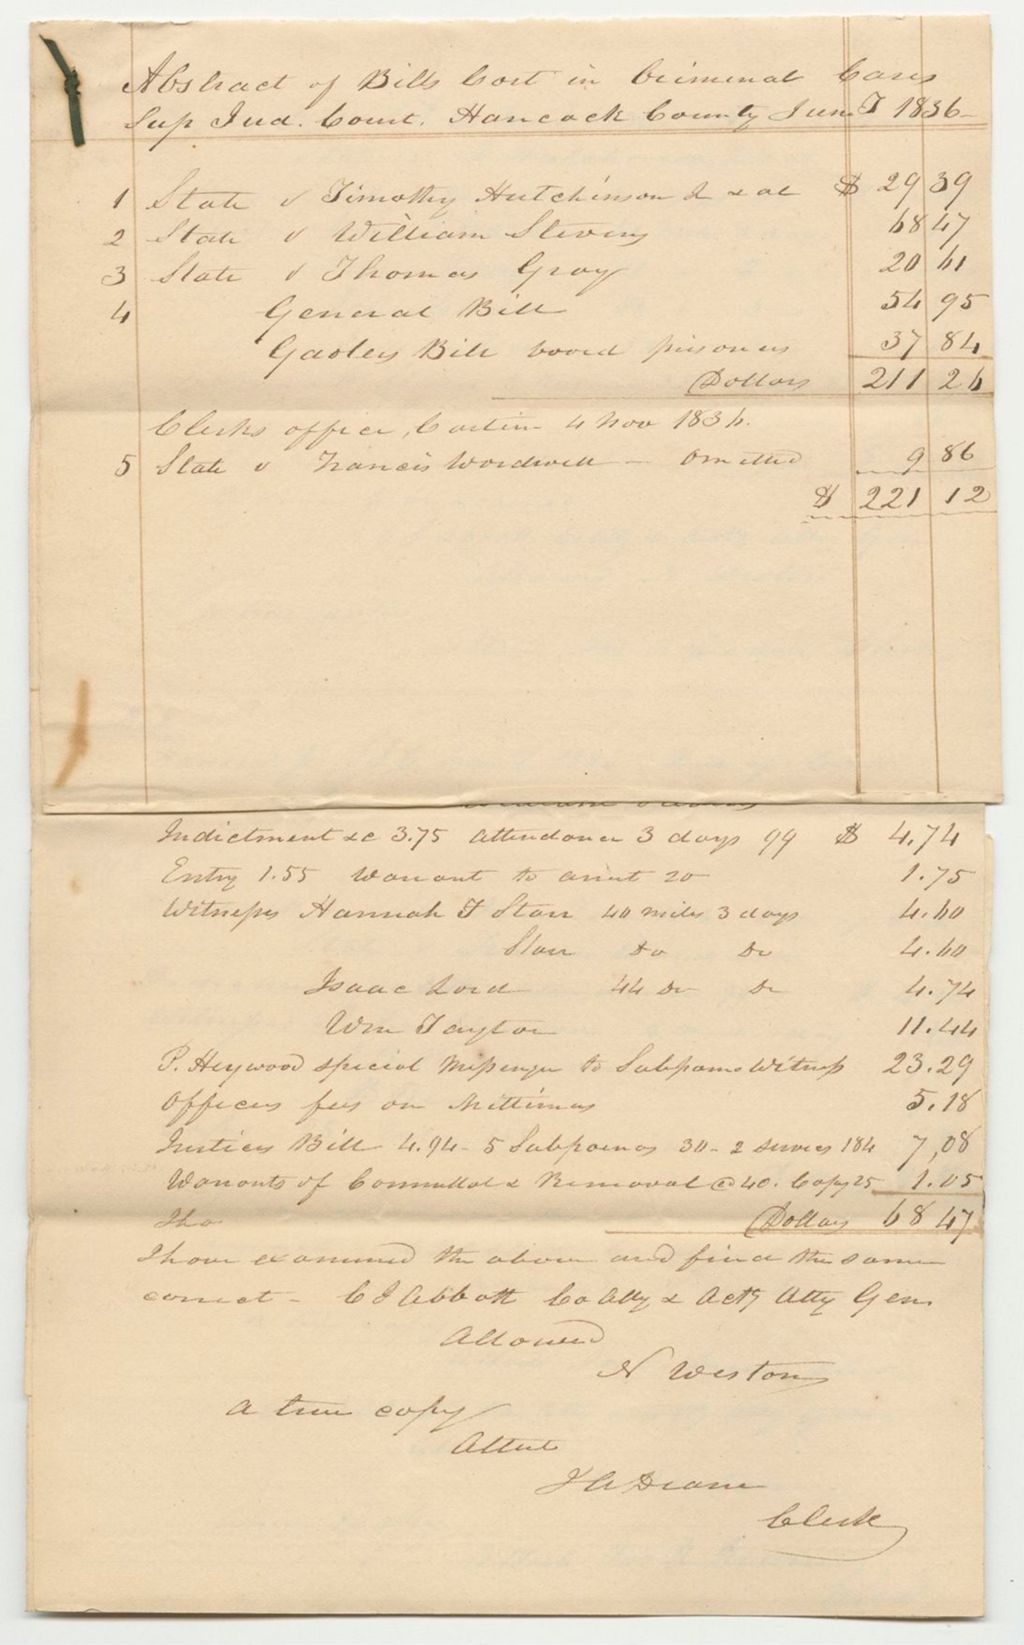 Abstract of Bills Cost in Criminal Cases
Sup Jud. Court. Hancock County June T 1836
1 State v Timothy Hutchinson Jr & al $ 29 39
2 State v William Stevens 68 47
3 State v Thomas Gray 20 61
4 General Bill 54 95
Gaolers Bill board prisoners 37 84
Dollars 211 26
Clerks office, Castine 4 Nov 1836.
5 State v Francis Wardwell - omitted 9 86
$ 221 12
Indictment &c 3.75 attendance 3 days 99 $ 4.74
Entry 1.55 Warrant to arrest 20 1.75
Witnesses Hannah T Starr 40 miles 3 days 4.60
Starr do do 4.60
Isaac Lord 44 do do 4.74
Wm Taylor 11.44
P. Heywood special Messenger to Subpoena Witness 23.29
Officers fees on Mittimus 5.18
Justices Bill 4.94 - 5 Subpoenas 30 - 2 services 184 7,08
Warrants of Committal & Removal @ 40. Copy 25 1.05
Dollars 68 47
I have examined the above and find the same
correct - C J Abbott Co Atty & Actg Atty Gen
Allowed
N Weston
A true copy
Attest
J A Deane
Clerk